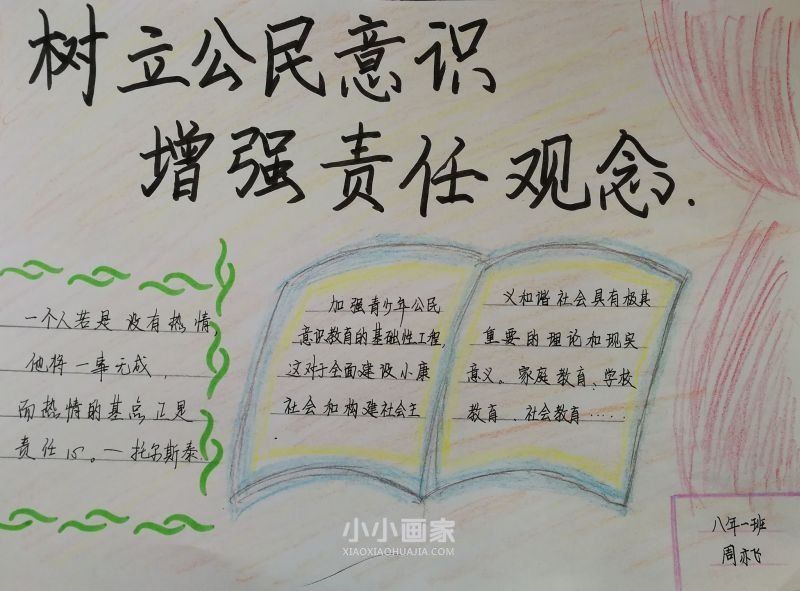 树立公民意识
增强责任观念.
一个人若是没有热情,
他将一事无成,
而热情的基点正是
责任心。一托尔斯泰.
加强青少年公民
意识教育的基础性工程,
这对于全面建设小康
社会和构建社会主
义和谐社会具有极其
重要的理论和现实
意义。家庭教育、学校
教育、社会教育……
八年一班
周亦飞
小小画家
XIAOXIAOHUAJIA.COM